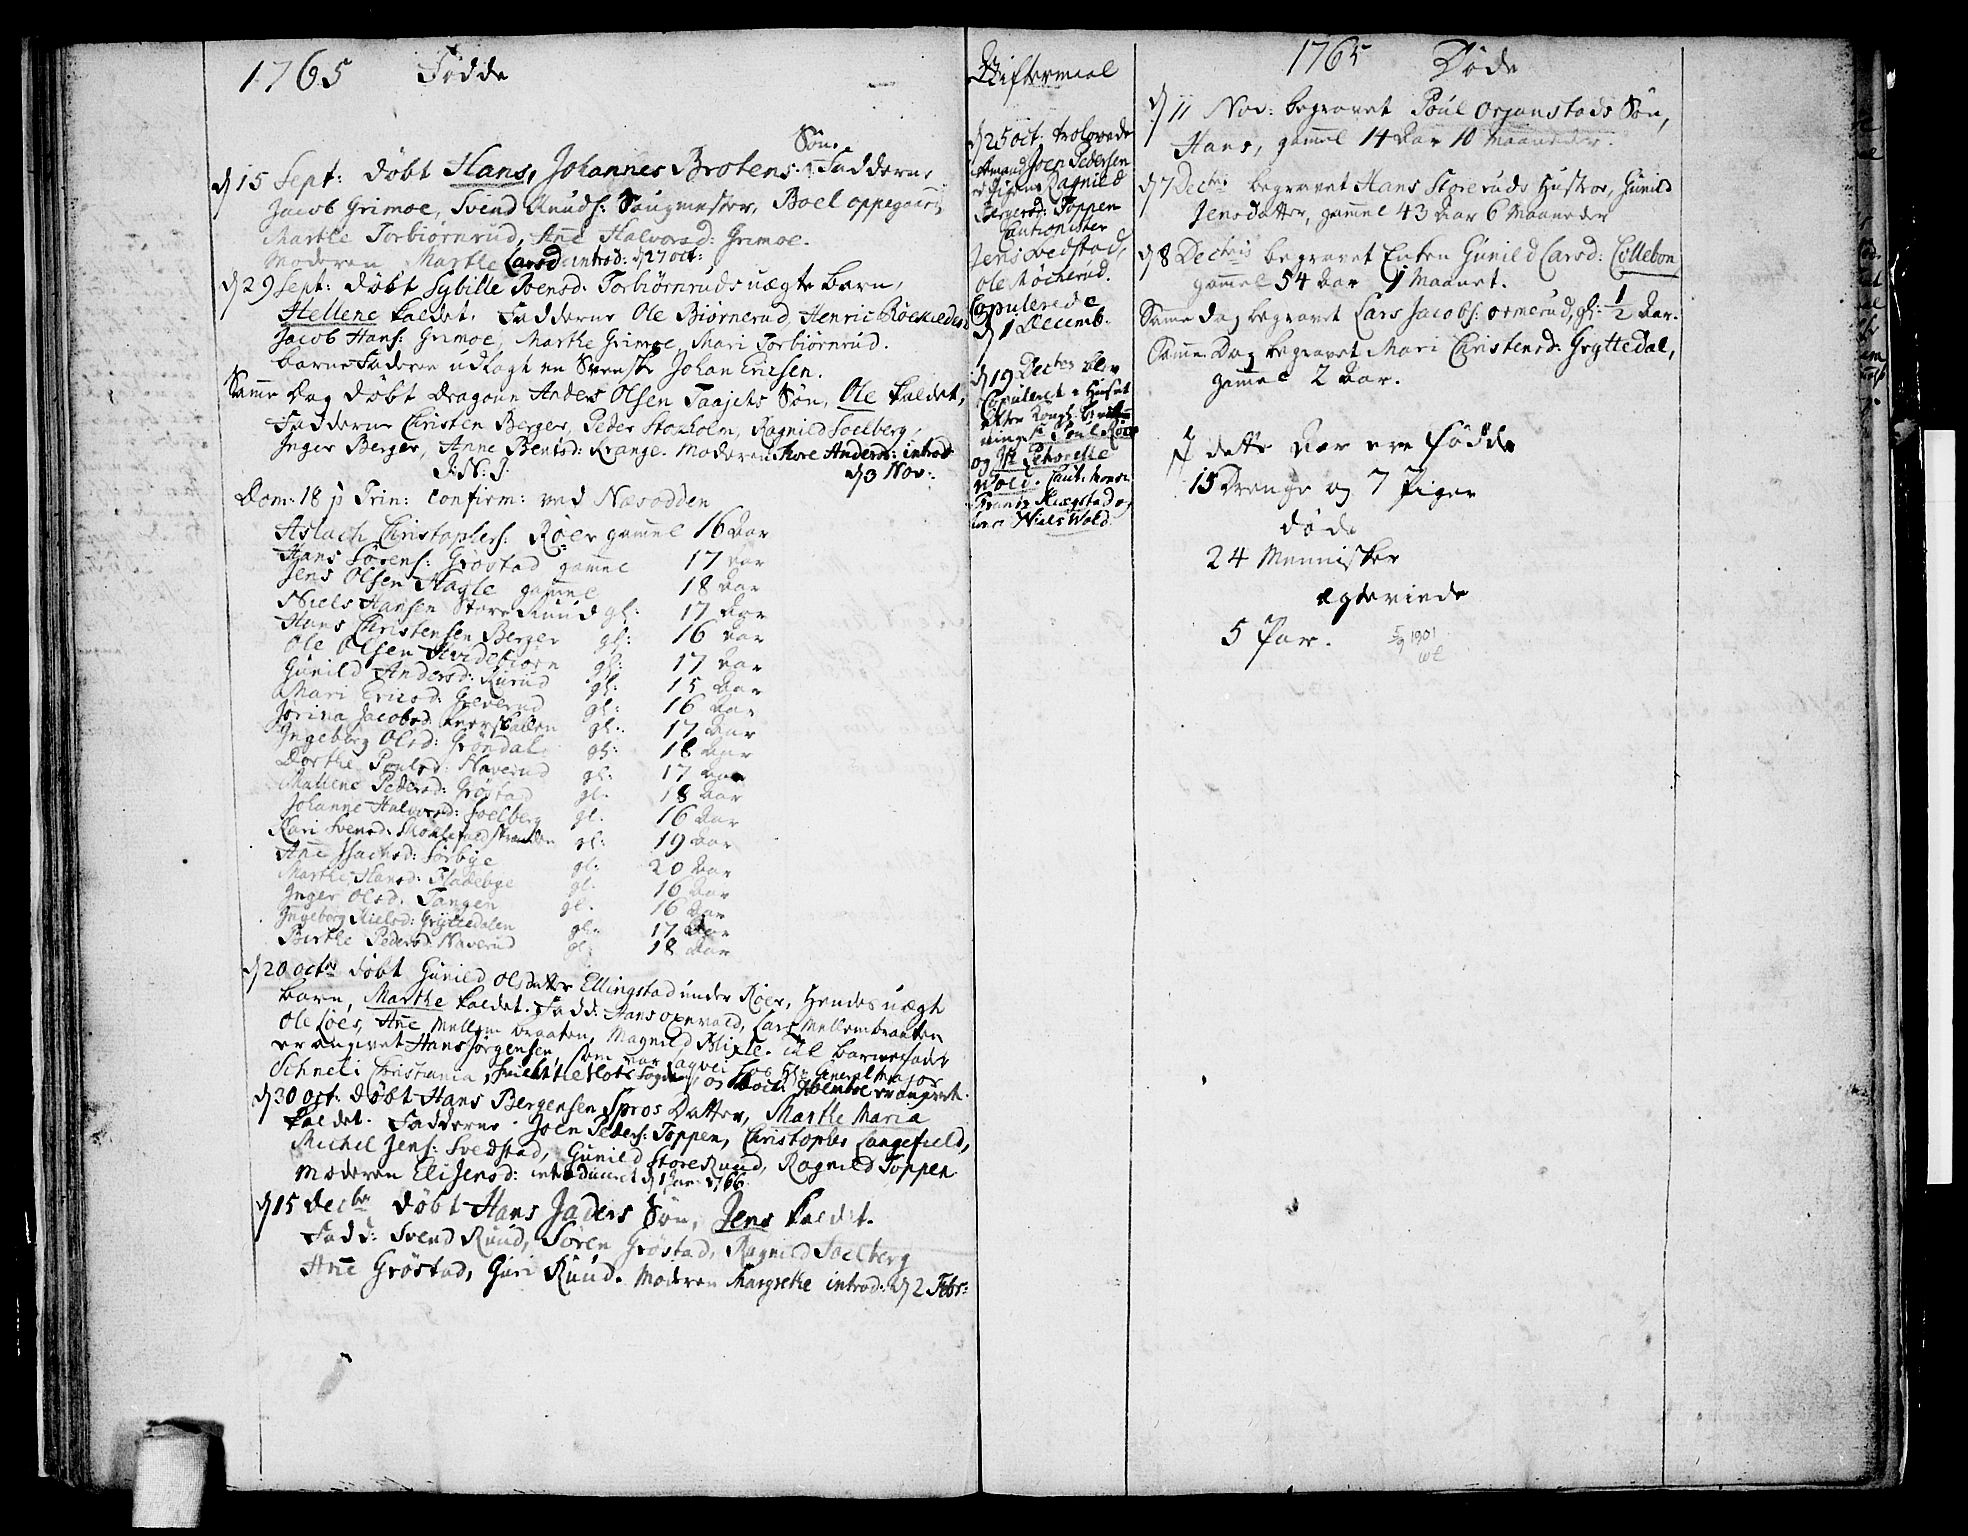 1765 Fødde
Søn.
d 15 Sept: døbt Hans, Johannes Brotens Fadderne
Jacob Grimoe, Svend Ruuds: Saugmester, Boel oppegaard,
Marthe Torbiørnrud, Añe Halvorsd: Grimoe.
Moderen Marthe Larsd: introd: d 27 oct:
d 29 Sept: døbt Sybille Svensd: Torbiørnruds uægte barn,
Hellene kaldet. Fadderne Ole Biørnerud, Henric
Jacob Hans: Grimoe, Marthe Grimoe, Mari Torbiørnrud.
barne Faderen udlagt en Svensk Johan Ericsen.
Samme Dag døbt Dragoun Anders Olsen Søn, Ole kaldet,
Fadderne Christen Berger, Peder Stokholm, Ragnild Soelberg,
Inger Berger, Anne Bentsd: Krange. Moderen Anders: introd
J: N: J: d 3 Nov:
Dom: 18 p Trin: confirm: ved Næsodden
Aslach Christophers: Røer gamel 16 aar
Hans Sørens: Grøstad gamel 17 aar
Jens Olsen Hagle gamel 18 aar
Niels Hansen Store Ruud gl: 17 aar
Hans Christensen Berger gl: 16 aar
Ole Olsen Hvidebiørn gl: 17 aar
Gunild Andersd: Rurud gl: 15 aar
Mari Ericsd: Greverud gl: 16 aar
Jorina Jacobsd: gl: 17 aar
Ingeborg Olsd: Grøndal gl: 18 aar
Dorthe Poulsd: Haverud gl: 17 aar
Mallene Pedersd: Grøstad gl: 18 aar
Johanne Halvorsd: Soelberg gl: 16 aar
Kari Svensd: gl: 19 aar
Añe Isachsd: Sørbye gl: 20 aar
Marthe Hansd: Fladebye gl: 16 aar
Inger Olsd: Tangen gl: 16 aar
Ingeborg Nielsd: Gryttedalen gl: 17 aar
Birthe Pedersd: Haverud gl: 18 aar
d 20 octr døbt Gunild Olsdatter Ellingstad under Røer, Hendes uægt
barn, Marthe kaldet. Fadd: Hans oxevald, Lars Mellembraaten
Ole Løes, Añe Mellem braaten, Magnild Blixle. Til barnefader
er angivet Hans Jørgensen, som var hos Hr General Major
Schneli Christiania,
d 30 oct: døbt Hans Bergensen Spros Datter, Marthe Maria
kaldet. Fadderne. Joen Peders: Toppen, Christopher Langefield,
Michel Jens: Svedstad, Gunild Store Ruud, Ragnild Toppen
Moderen Eli Jensd: introduceret d 1 Jan: 1766.
d 15 decbr døbt Hans Jaders Søn, Jens kaldet.
Fadd: Svend Ruud, Søren Grøstad, Ragnild Soelberg
Añe Grøstad, Guri Ruud. Moderen Margrethe introd: d 2 Febr:
Giftermaal
d 25 oct: trolovede
Joen Pedersen
Pigen Ragnild
Toppen
Cautionister
Jens Svedstad,
Ole Møcherud.
Copulerede
d 1 Decemb:
d 19 Decbris blev
Copuleret i Huset
efter Kongl:
Poul Røer
og
Wold. Caut:
Niels Wold.
1765 Døde
d 11 Nov: begravet Poul Orjanstads Søn,
Hans, gamel 14 aar 10 Maaneder.
d 7 Decbris begravet Hans Storeruds Hustroe, Gunild
Jensdatter, gamel 43 aar 6 Maaneder
d 8 Decbris begravet Enken Gunild Larsd: Collebon,
gamel 54 aar 9 Maanet.
Same dag begravet Lars Jacobs: ormerud, gl: ½ aar.
Same Dag begravet Mari Christensd: Gryttedal,
gamel 2 aar.
I dette aar ere fødde
15 Drenge og 7 Piger
døde
24 Mennisker
egteviede
5 Par.
5/9 1901